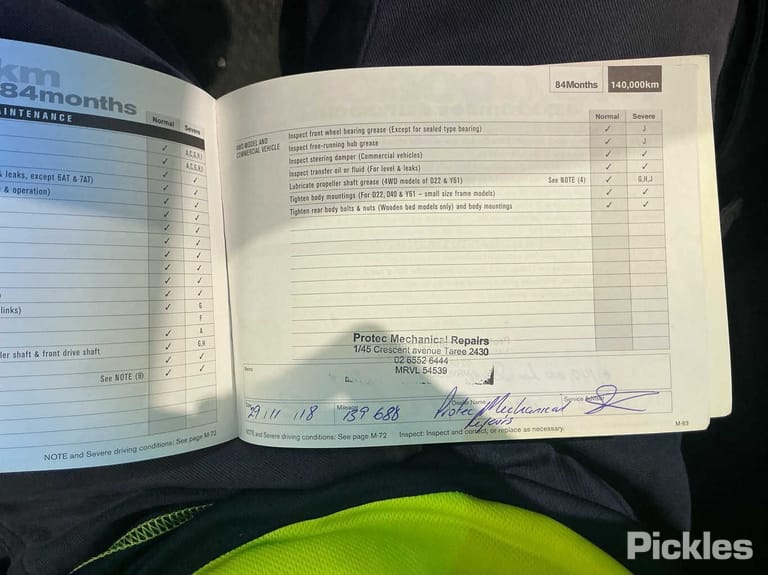 km
84months
MAINTENANCE
Normal
Severe
✓ A,C,G,H,I
✓ A,C,G,H,I
✓ ✓
& leaks, except 6AT & 7AT) ✓ ✓
& operation) ✓ ✓
✓ ✓
✓ ✓
✓ ✓
✓ ✓
✓ ✓
✓ ✓
) ✓ ✓
links) ✓ G
F
✓ A
ler shaft & front drive shaft ✓ G,H
✓ ✓
See NOTE (9) ✓ ✓
NOTE and Severe driving conditions: See page M-72
84Months 140,000km
Normal Severe
4WD MODEL AND
COMMERCIAL VEHICLE
Inspect front wheel bearing grease (Except for sealed type bearing) ✓ J
Inspect free-running hub grease ✓ J
Inspect steering damper (Commercial vehicles) ✓ ✓
Inspect transfer oil or fluid (For level & leaks) ✓ ✓
Lubricate propeller shaft grease (4WD models of D22 & Y61) See NOTE (4) ✓ G,H,J
Tighten body mountings (For D22, D40 & Y61 – small size frame models) ✓ ✓
Tighten rear body bolts & nuts (Wooden bed models only) and body mountings ✓ ✓
Protec Mechanical Repairs
1/45 Crescent avenue Taree 2430
02 6552 6444
MRVL 54539
Memo
Date 29/11/18 Mileage 139 688 Dealer Name Protec Mechanical Repairs Service Advisor
NOTE and Severe driving conditions: See page M-72 Inspect: Inspect and correct, or replace as necessary. M-63
Pickles